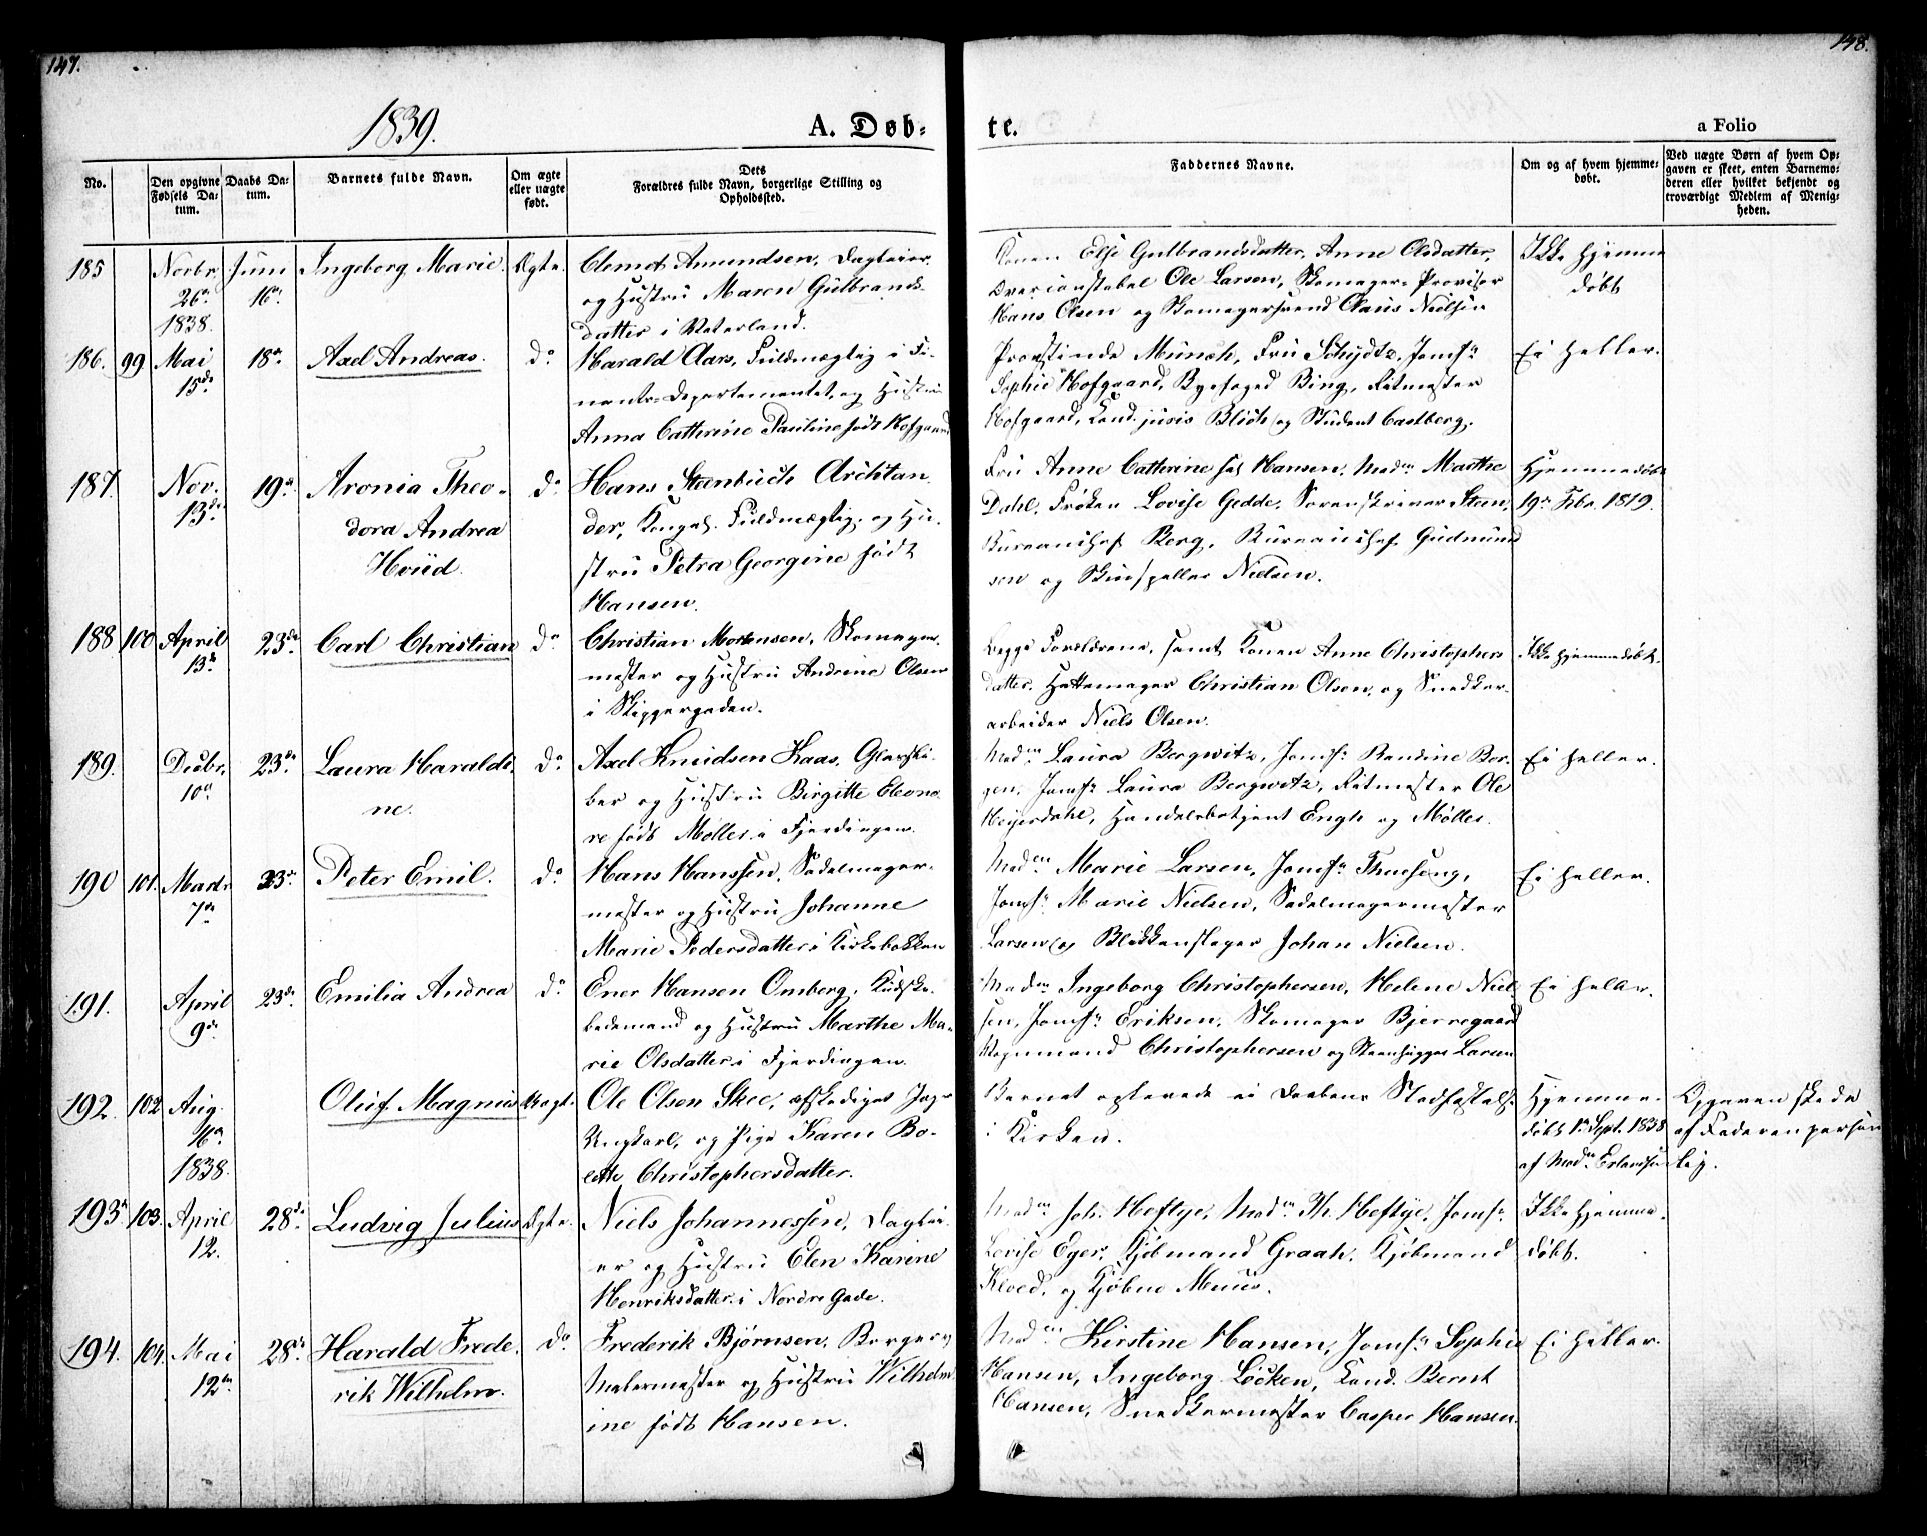 147.
148.
1839.
A. Døb-
te.
a Folio
No.
Den opgivne Fødsels Datum.
Daabs Datum.
Barnets fulde Navn.
Om ægte eller uægte født.
Dets Forældres fulde Navn, borgerlige Stilling og Opholdssted.
Faddernes Navne.
Om og af hvem hjemmedøbt.
Ved uægte Børn af hvem Opgaven er skeet, enten Barnemoderen eller hvilket bekjendt og troværdigt Medlem af Menigheden.
185 Novbr. Juni Ingeborg Marie. Ægte. Clemet Amundsen, Dagleier
26de 16de og Hustru Maren Gulbrands-
1838. datter i Vaterland.
Konen Else Gulbrandsdatter, Anne Olsdatter,
Overconstabel Ole Larsen, Skomager-Provisor
Hans Olsen og Skomagersvend Claus Nielsen
Ikke hjemme
døbt
186. 99 Mai 18de Axel Andreas. do Harald Aars, Fuldmægtig i Fi-
15de nants-Departementet, og Hustru
Anna Catherine Pauline født Hofgaard
Provstinde Münch, Fru Schydtz, Jomfr
Sophie Hofgaard, Byefoged Bing, Ritmester
Hofgaard, Cand. juris Blich og Student Castberg.
Ei heller.
187. Nov. 19de Aronia Theo- do Hans Steenbuch Archtan
13de dora Andrea der, Kongel. Fuldmægtig, og Hu-
Hviid. stru Petra Georgine født
Hansen.
Fru Anne Catherine Hansen, Madm Marthe
Dahl, Frøken Lovise Gedde, Sorenskriver Steen,
Bureauchef Berg, Bureauchef Gudmund
sen og Skuespiller Nielsen.
Hjemmedøbt
19de Febr. 1819.
188 100 April 23de Carl Christian do Christian Mortensen, Skomager-
13de mester og Hustru Andrine Olsen
i Skippergaden.
Begge Forældrene, samt Konen Anne Christophers
datter, Hattemager Christian Olsen, og Snedker-
arbeider Niels Olsen.
Ikke hjemmedøbt.
189. Decbr. 23de Laura Haraldi- do Axel Knudsen Kaas,
10de ne. og Hustru Birgitte Eleono
re født Møller i Fjerdingen.
Madm Laura Bergwitz, Jomfr Randine Bor-
gen, Jomfr Laura Bergwitz, Ritmester Ole
Heyerdahl, Handelsbetjent Engh og Møller.
Ei heller.
190 101. Marts 23de Peter Emil. do Hans Hanssen, Sadelmager-
7de mester og Hustru Johanne
Marie Pedersdatter i Kirkebakken
Madm Marie Larsen, Jomfr
Jomfr Marie Nielsen, Sadelmagermester
Larsen og Blikkenslager Johan Nielsen.
Ei heller.
191. April 23de Emilia Andrea do Ener Hansen Omberg, Kudske.
9de bedemand og Hustru Marthe Ma-
rie Olsdatter i Fjerdingen.
Madm Ingeborg Christophersen, Helene Niel-
sen, Jomfr Eriksen, Skomager Bjerregaard
Christophersen og Steenhugger Larsen
Ei heller.
192. 102 Aug. Oluf Magnus Uægt. Ole Olsen Skee, afskediget Jæger
16de Ungkarl, og Pige Karen Bo-
1838. lette Christophersdatter.
Barnet opførede ei Daabens Stadfæstelse
i Kirken.
Hjemme-
døbt 1de Sept. 1838
af Madm Erlandsen
Opgaven skede
af Faderen person
lig.
193 103. April 28de Ludvig Julius Ægte. Niels Johannessen, Daglei-
12. er og Hustru Elen Karine
Henriksdatter i Nordre Gade.
Madm Joh. Heftye, Madm Th. Heftye, Jomfr
Lovise Eger, Kjøbmand Graah, Kjøbmand
Kloed, og Kjøbm Muus.
Ikke hjemme-
døbt.
194. 104. Mai 28de Harald Frede- do Frederik Bjørnsen, Borger og
12te rik Wilhelm. Malermester og Hustru Wilhelm
ine født Hansen.
Madm Kirstine Hansen, Jomfr Sophie
Hansen, Ingeborg Løcken, Cand. Bernt
Hansen, Snedkermester Casper Hansen.
Ei heller.